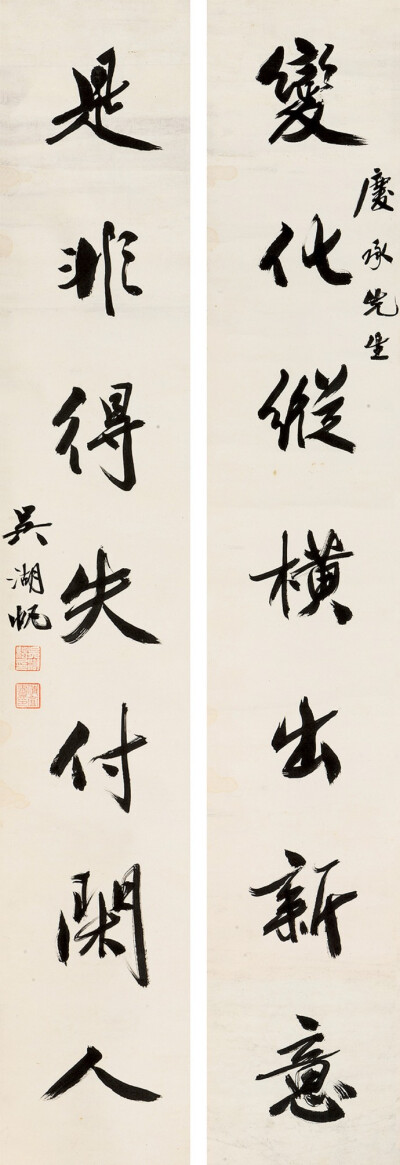 慶承先生
變化縱橫出新意
是非得失付閑人
吳湖帆